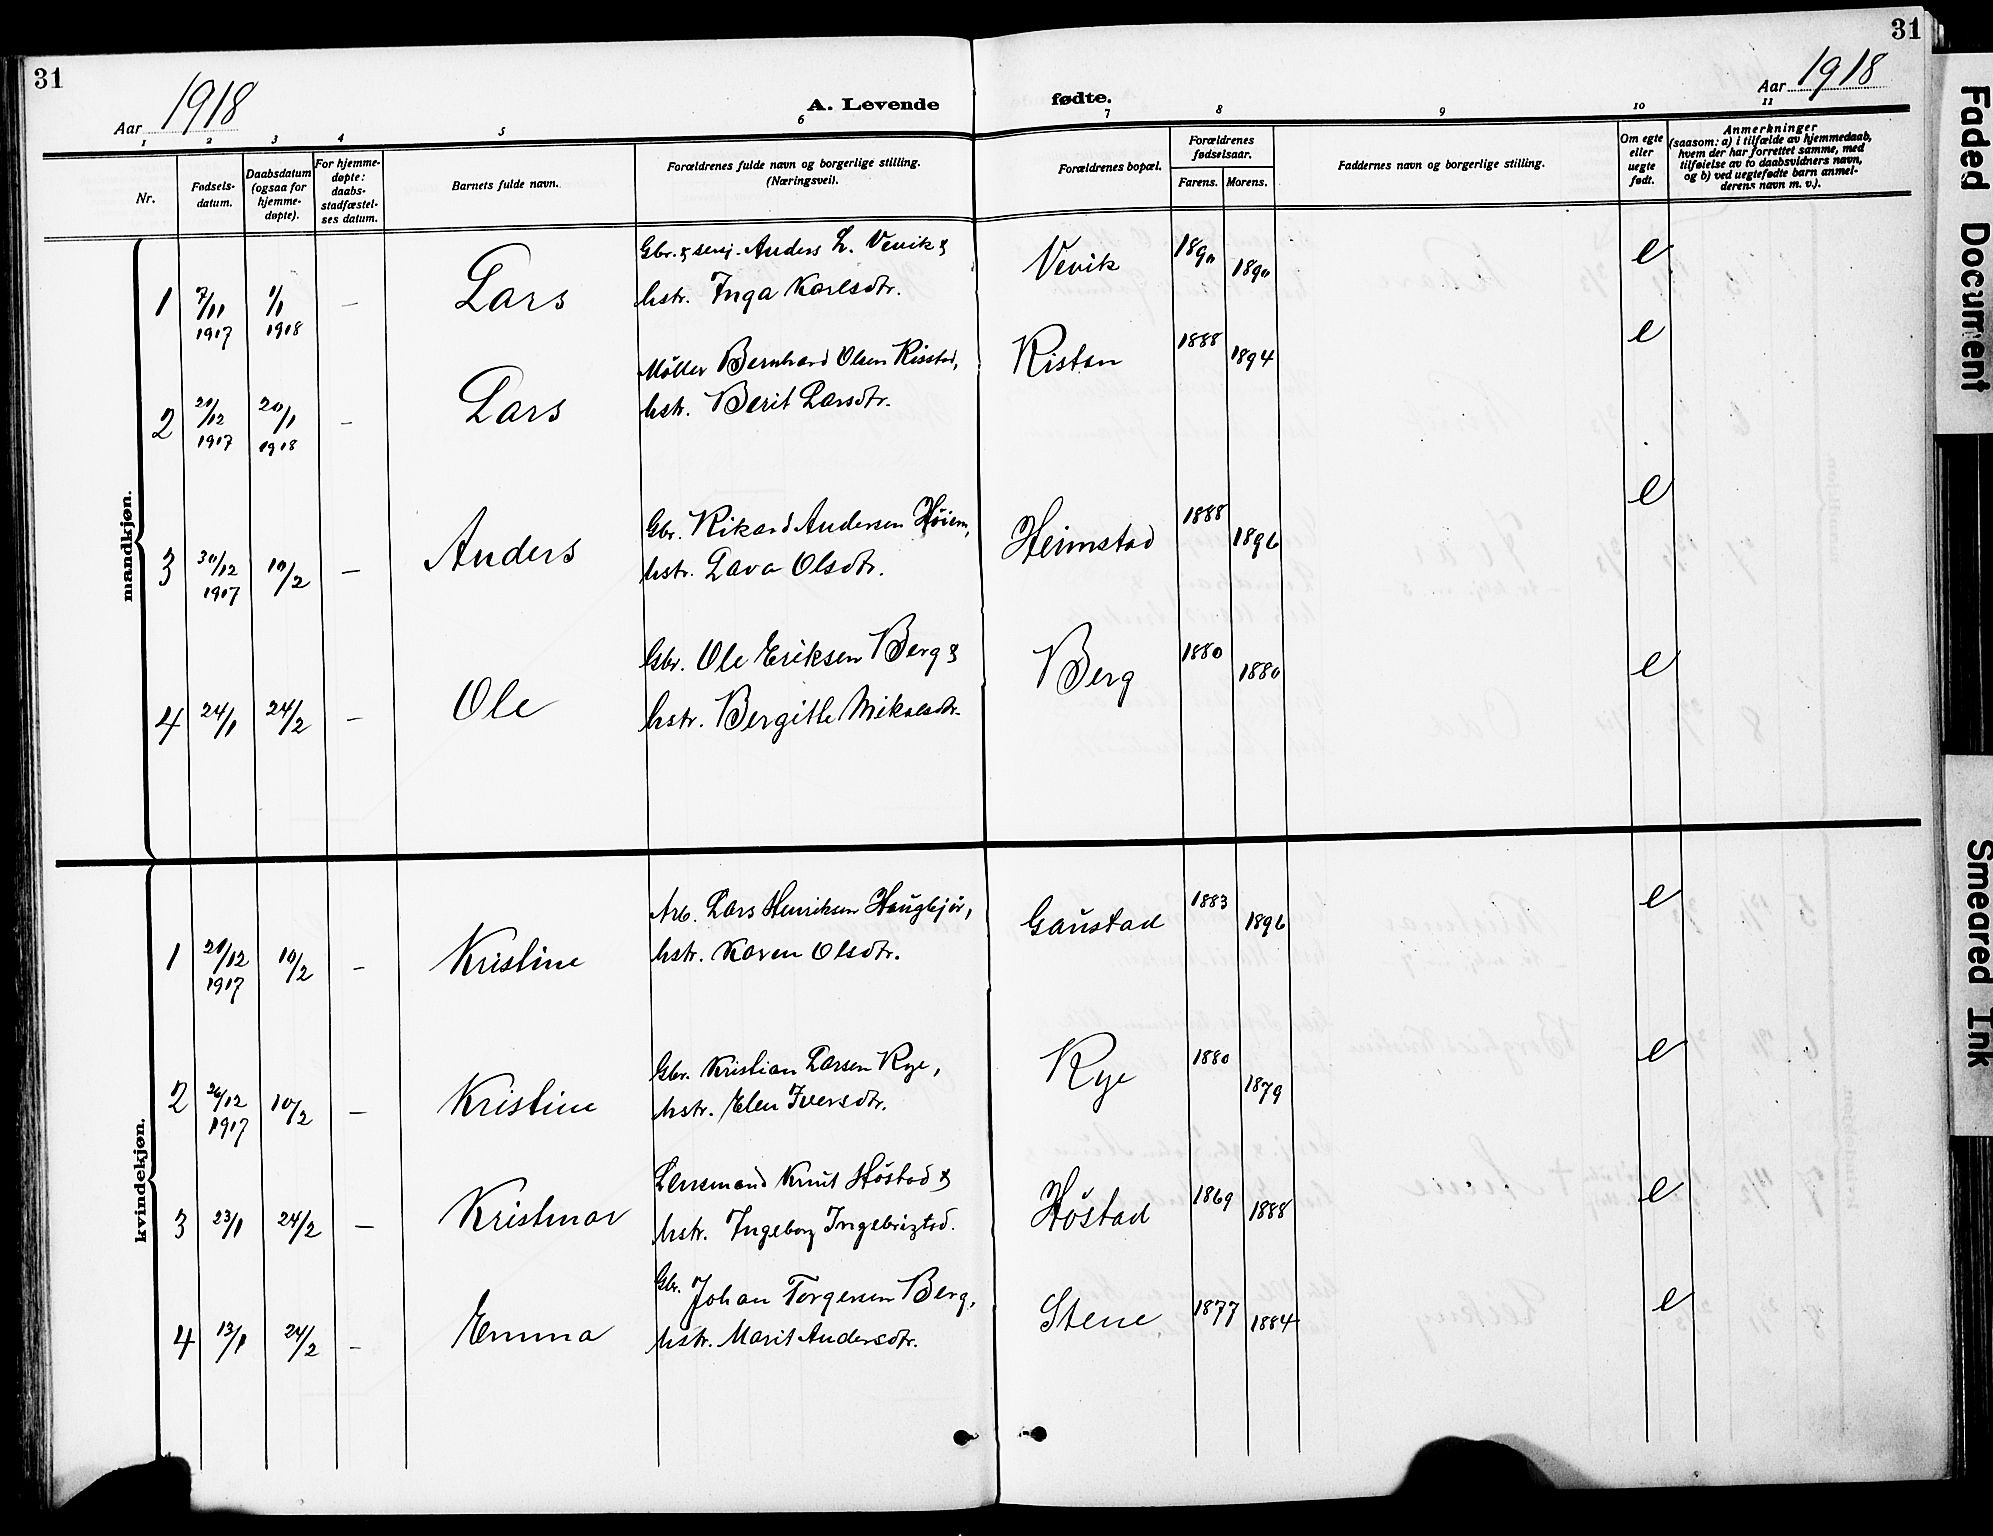 31
Aar 1918
A. Levende
fødte.
Aar 1918
31
1 2 3 4 5 6 7 8 9 10 11
Nr.
Fødsels-
datum.
Daabsdatum
(ogsaa for
hjemme-
døpte).
For hjemme-
døpte:
daabs-
stadfæstel-
ses datum.
Barnets fulde navn.
Forældrenes fulde navn og borgerlige stilling.
(Næringsvei).
Forældrenes bopæl.
Forældrenes
fødselsaar.
Farens. Morens.
Faddernes navn og borgerlige stilling.
Om egte
eller
uegte
født.
Anmerkninger
(saasom: a) i tilfælde av hjemmedaab,
hvem der har forrettet samme, med
tilføielse av to daabsvidners navn,
og b) ved uegtefødte barn anmel-
derens navn m. v.).
mandkjøn.
Gbr. & serj. Anders L. Vevik &
1 7/11 1917 1/1 1918 — Lars
hstr. Inga Karlsdtr.
Vevik 1890 1890 e
Møller Bernhard Olsen Risstad,
2 21/12 1917 20/1 1918 — Lars
hstr. Berit Larsdtr.
Ristan 1888 1894 e
Gbr. Rikard Andersen Høiem,
3 30/12 1917 10/2 — Anders
hstr. Lava Olsdtr.
Heimstad 1888 1896 e
Gbr. Ole Eriksen Berg &
4 24/1 24/2 — Ole
hstr. Bergitte Mikalsdtr.
Berg 1880 1880 e
kvindekjøn.
Arb. Lars Henriksen Haugbjør,
1 21/12 1917 10/2 — Kristine
hstr. Karen Olsdtr.
Gaustad 1883 1896 e
Gbr. Kristian Larsen Rye,
2 26/12 1917 10/2 — Kristine
hstr. Elen Iversdtr.
Rye 1880 1879 e
Lensmand Knut Høstad &
3 23/1 24/2 — Kristmar
hstr. Ingeborg Ingebrigtsd.
Høstad 1869 1888 e
Gbr. Johan Torgersen Berg,
4 13/1 24/2 — Emma
hstr. Marit Andersdtr.
Stene 1877 1884 e
Faded Document
Smeared Ink